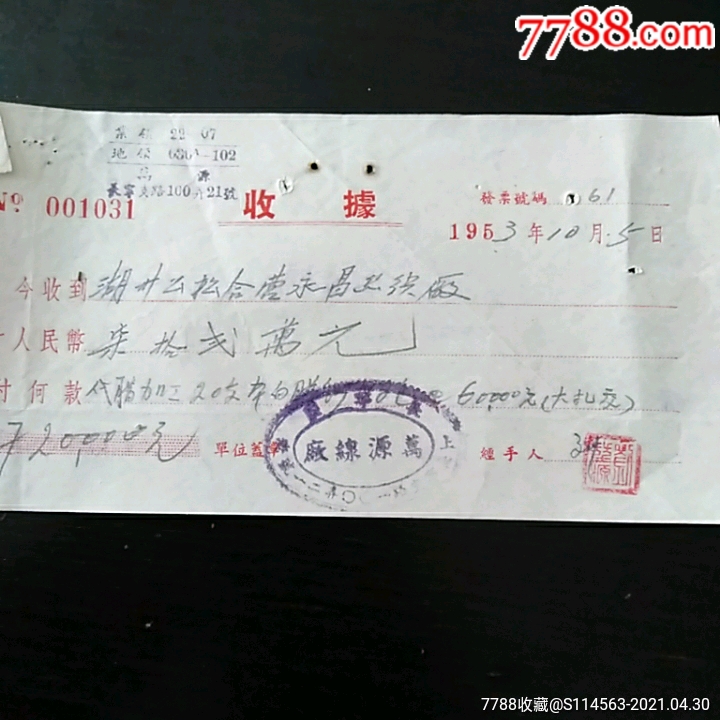 7788.com
地公 102
源
長寧支路100弄21號
Nº 001031
收據
發票號碼 61
1953年10月5日
今收到 湖廾公松合营永昌 廠
人民幣 柒拾弍萬元
付何款 代腊加工20支 白腊 @60000元(大扎交)
720,000元
單位蓋章
經手人
上 萬源線廠
7788收藏@S114563-2021.04.30